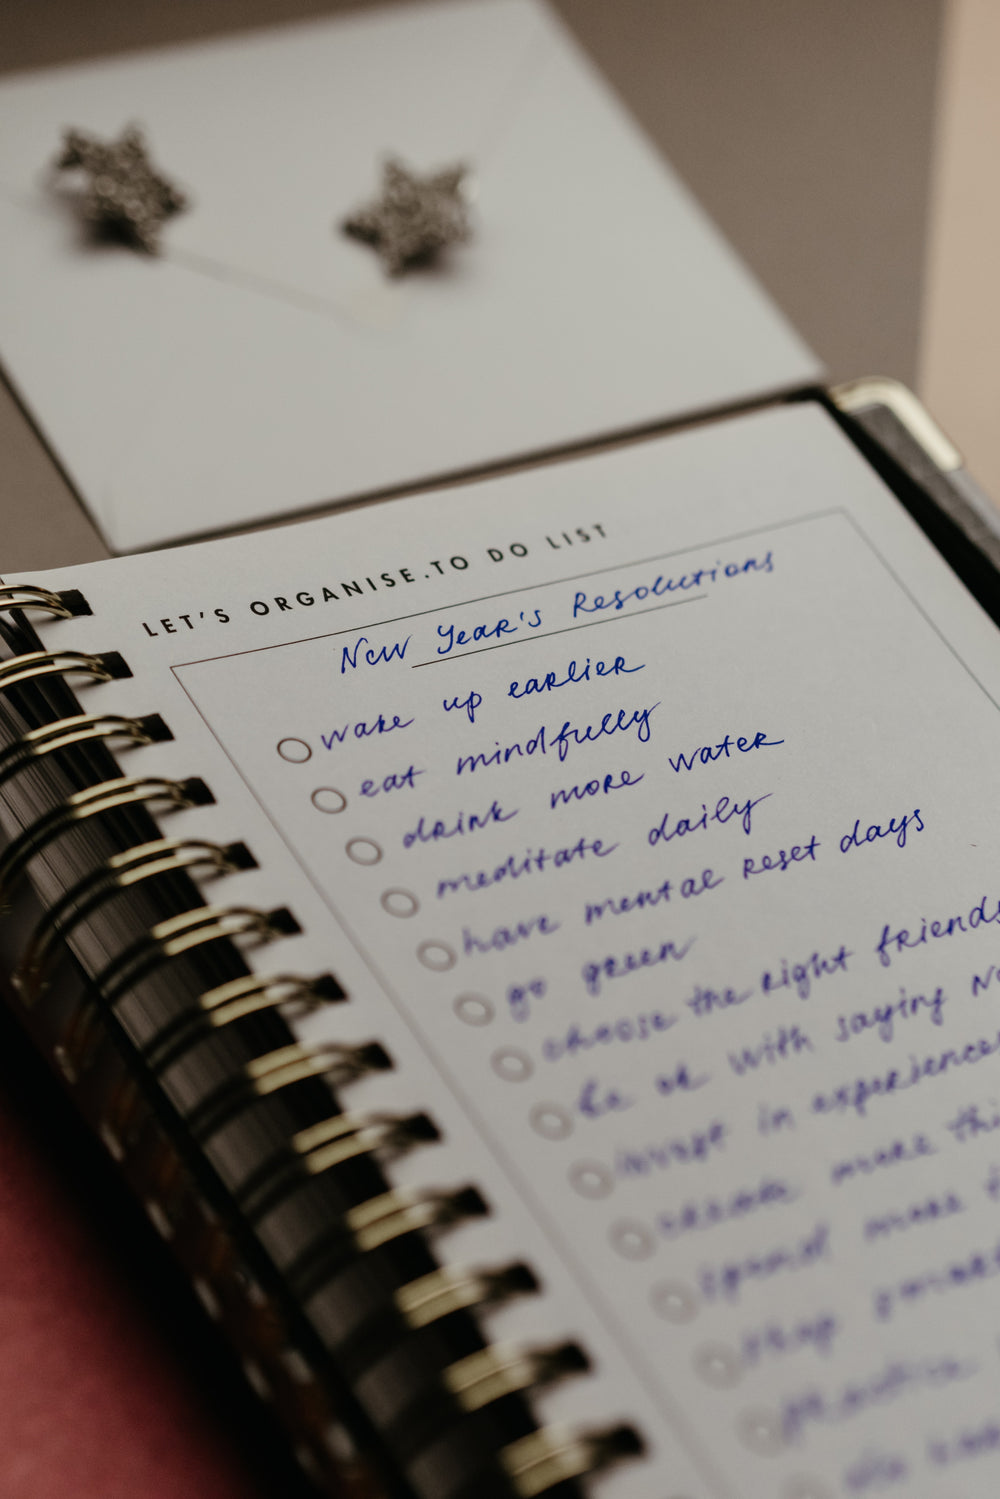 LET'S ORGANISE.TO DO LIST
New Year's Resolutions
wake up earlier
eat mindfully
drink more water
meditate daily
have mental reset days
go green
choose the right friends
be ok with saying No
invest in experiences
create more
spend more
stop
practice